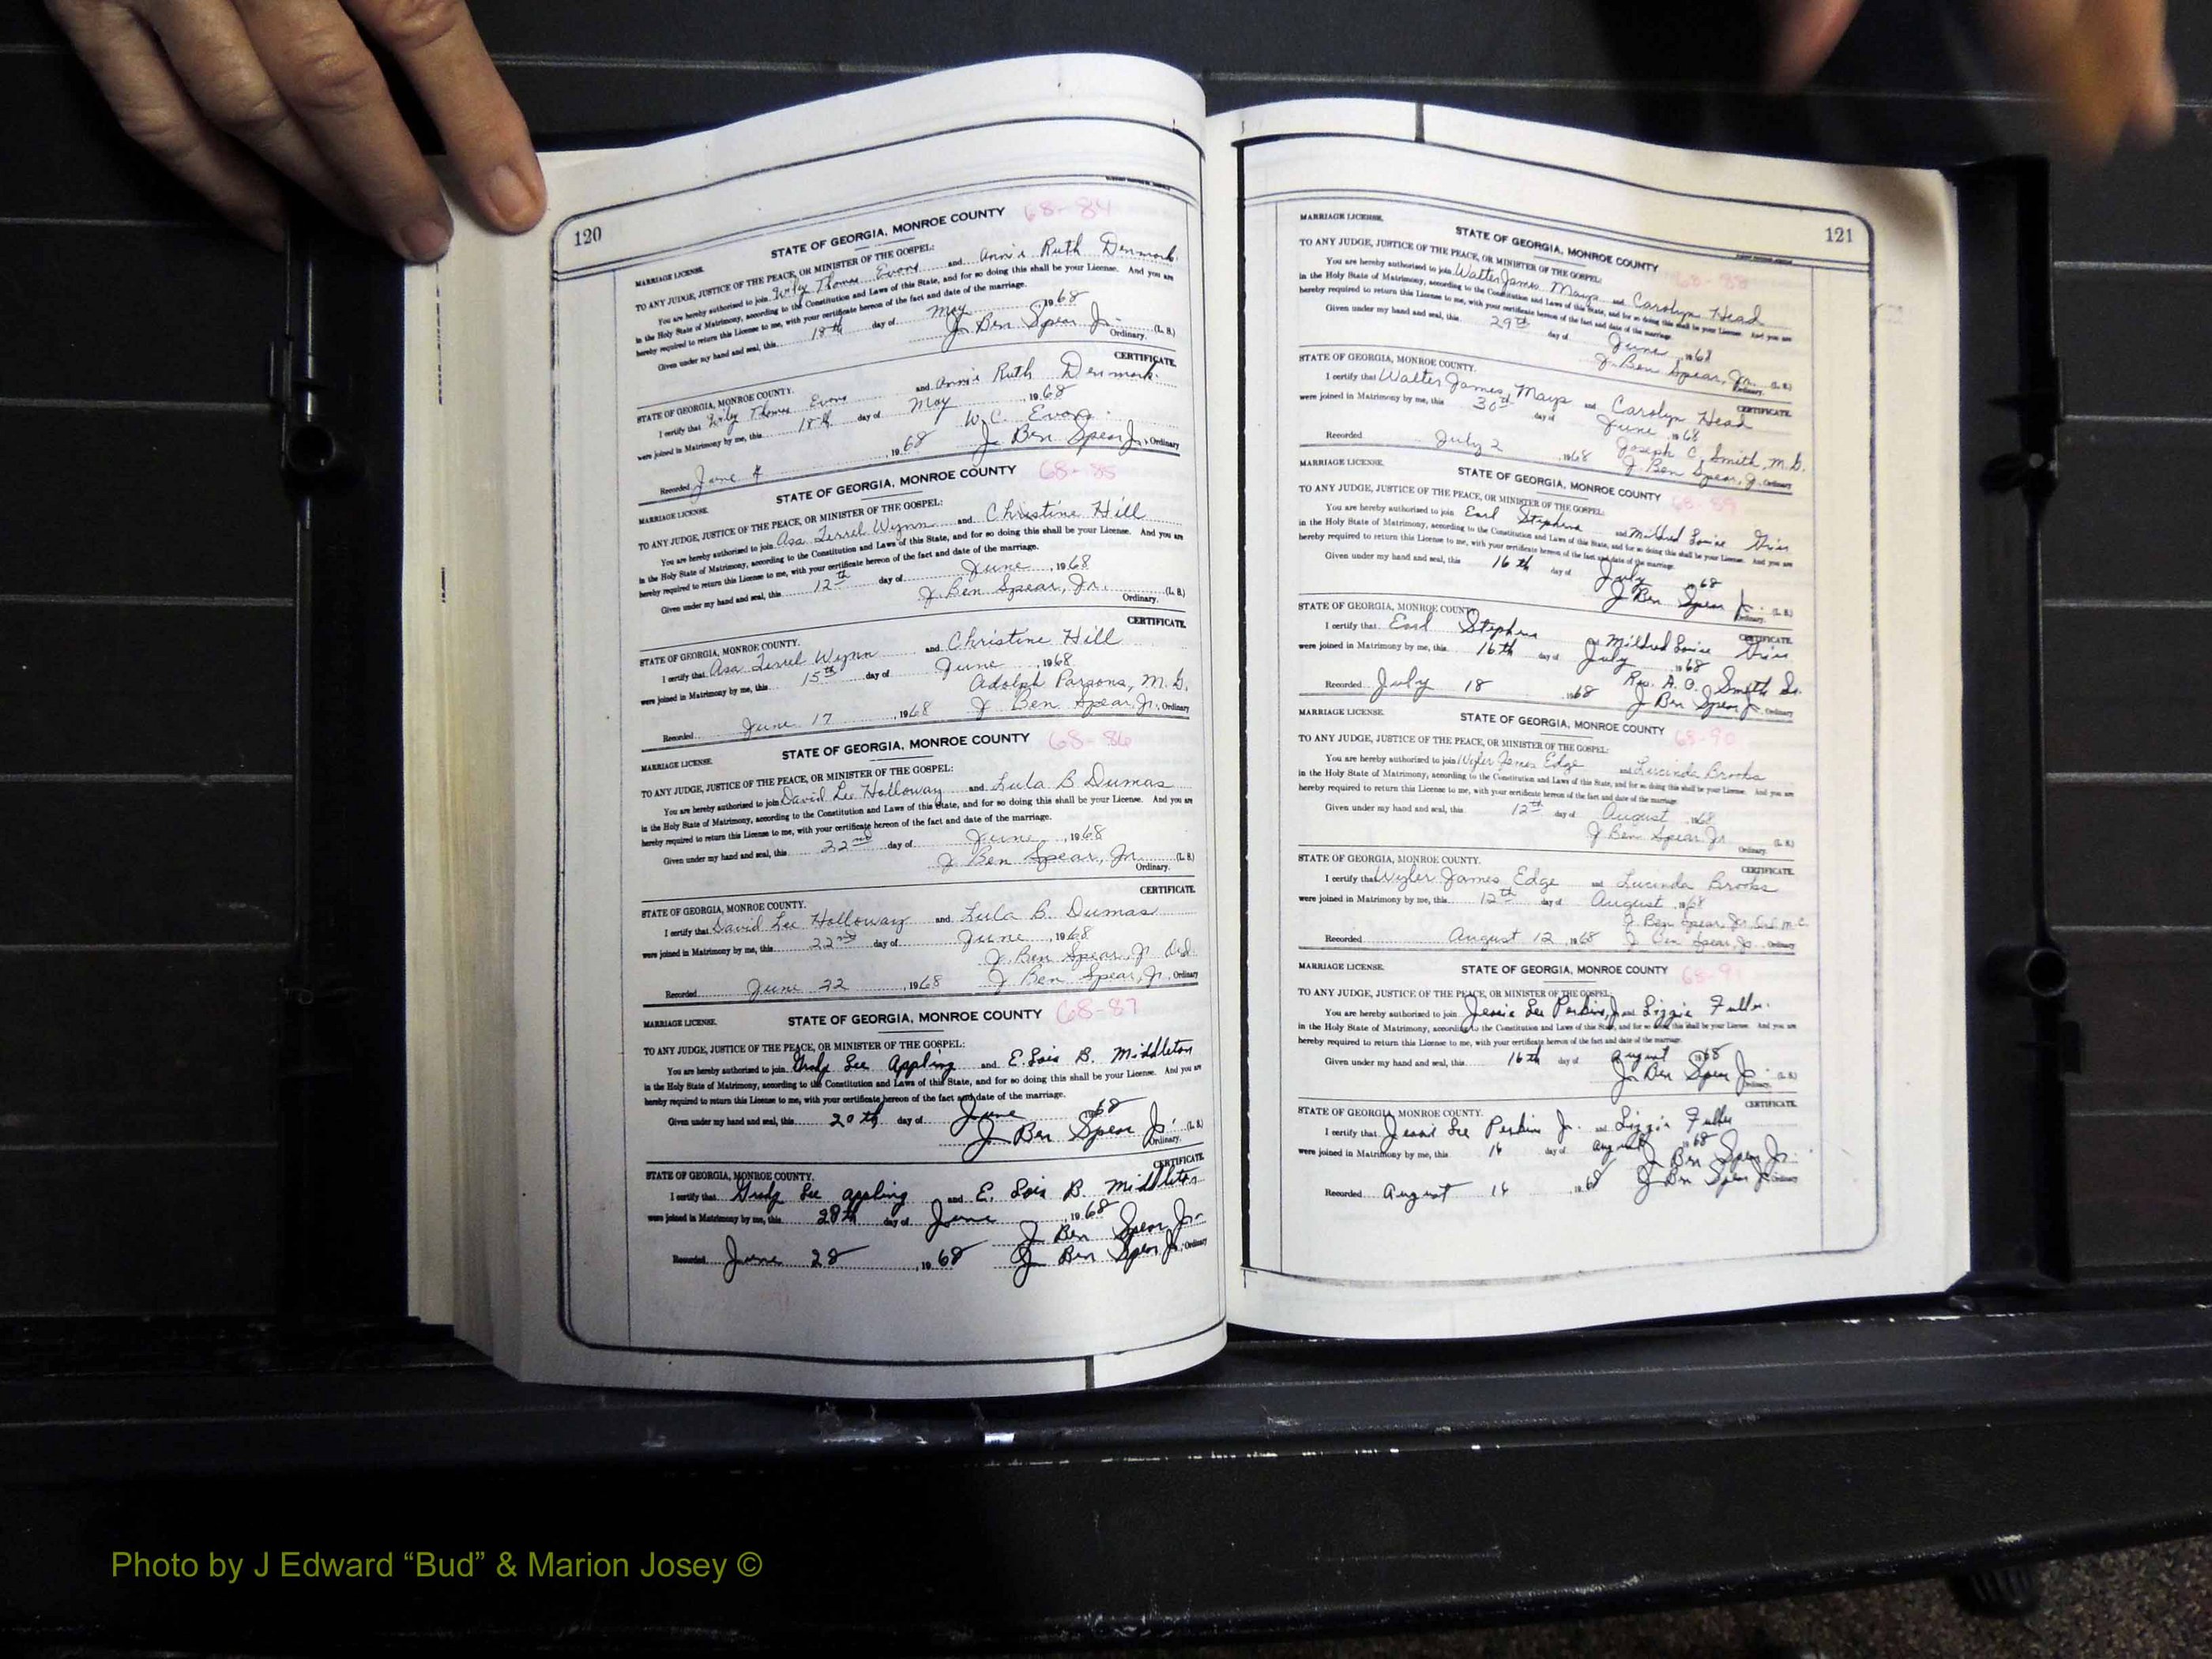 120
STATE OF GEORGIA, MONROE COUNTY 68-84
MARRIAGE LICENSE.
TO ANY JUDGE, JUSTICE OF THE PEACE, OR MINISTER OF THE GOSPEL:
You are hereby authorized to join Wily Thomas Evans and Annie Ruth Denmark
in the Holy State of Matrimony, according to the Constitution and Laws of this State, and for so doing this shall be your License. And you are
hereby required to return this License to me, with your certificate hereon of the fact and date of the marriage.
Given under my hand and seal, this 18th day of May 1968
J Ben Spear Jr. (L. S.)
Ordinary.
CERTIFICATE.
STATE OF GEORGIA, MONROE COUNTY.
I certify that Wily Thomas Evans and Annie Ruth Denmark
were joined in Matrimony by me, this 18th day of May, 1968
W. C. Evans
Recorded June 4, 1968 J Ben Spear Jr., Ordinary
STATE OF GEORGIA, MONROE COUNTY 68-85
MARRIAGE LICENSE.
TO ANY JUDGE, JUSTICE OF THE PEACE, OR MINISTER OF THE GOSPEL:
You are hereby authorized to join Asa Terrel Wynn and Christine Hill
in the Holy State of Matrimony, according to the Constitution and Laws of this State, and for so doing this shall be your License. And you are
hereby required to return this License to me, with your certificate hereon of the fact and date of the marriage.
Given under my hand and seal, this 12th day of June, 1968
J. Ben Spear, Jr. (L. S.)
Ordinary.
CERTIFICATE.
STATE OF GEORGIA, MONROE COUNTY.
I certify that Asa Terrel Wynn and Christine Hill
were joined in Matrimony by me, this 15th day of June, 1968
Adolph Parsons, M. G.
Recorded June 17, 1968 J. Ben Spear, Jr., Ordinary
STATE OF GEORGIA, MONROE COUNTY 68-86
MARRIAGE LICENSE.
TO ANY JUDGE, JUSTICE OF THE PEACE, OR MINISTER OF THE GOSPEL:
You are hereby authorized to join David Lee Holloway and Lula B Dumas
in the Holy State of Matrimony, according to the Constitution and Laws of this State, and for so doing this shall be your License. And you are
hereby required to return this License to me, with your certificate hereon of the fact and date of the marriage.
Given under my hand and seal, this 22nd day of June, 1968
J. Ben Spear, Jr. (L. S.)
Ordinary.
CERTIFICATE.
STATE OF GEORGIA, MONROE COUNTY.
I certify that David Lee Holloway and Lula B. Dumas
were joined in Matrimony by me, this 22nd day of June, 1968
J. Ben Spear, Jr Ord.
Recorded June 22, 1968 J. Ben Spear, Jr., Ordinary
STATE OF GEORGIA, MONROE COUNTY 68-87
MARRIAGE LICENSE.
TO ANY JUDGE, JUSTICE OF THE PEACE, OR MINISTER OF THE GOSPEL:
You are hereby authorized to join Grady Lee Appling and E. Lois B. Middleton
in the Holy State of Matrimony, according to the Constitution and Laws of this State, and for so doing this shall be your License. And you are
hereby required to return this License to me, with your certificate hereon of the fact and date of the marriage.
Given under my hand and seal, this 20th day of June 1968
J Ben Spear Jr. (L. S.)
Ordinary.
CERTIFICATE.
STATE OF GEORGIA, MONROE COUNTY.
I certify that Grady Lee Appling and E. Lois B. Middleton
were joined in Matrimony by me, this 28th day of June, 1968
J Ben Spear Jr.
Recorded June 28, 1968 J Ben Spear Jr., Ordinary
121
MARRIAGE LICENSE.
STATE OF GEORGIA, MONROE COUNTY 68-88
TO ANY JUDGE, JUSTICE OF THE PEACE, OR MINISTER OF THE GOSPEL:
You are hereby authorized to join Walter James Mays and Carolyn Head
in the Holy State of Matrimony, according to the Constitution and Laws of this State, and for so doing this shall be your License. And you are
hereby required to return this License to me, with your certificate hereon of the fact and date of the marriage.
Given under my hand and seal, this 29th day of June, 1968
J. Ben Spear, Jr. (L. S.)
Ordinary.
STATE OF GEORGIA, MONROE COUNTY.
CERTIFICATE.
I certify that Walter James Mays and Carolyn Head
were joined in Matrimony by me, this 30th day of June, 1968
Joseph C. Smith, M. G.
Recorded July 2, 1968 J Ben Spear, Jr. Ordinary
MARRIAGE LICENSE.
STATE OF GEORGIA, MONROE COUNTY 68-89
TO ANY JUDGE, JUSTICE OF THE PEACE, OR MINISTER OF THE GOSPEL:
You are hereby authorized to join Earl Stephens and Mildred Louise
in the Holy State of Matrimony, according to the Constitution and Laws of this State, and for so doing this shall be your License. And you are
hereby required to return this License to me, with your certificate hereon of the fact and date of the marriage.
Given under my hand and seal, this 16th day of July 1968
J Ben Spear Jr. (L. S.)
Ordinary.
STATE OF GEORGIA, MONROE COUNTY.
CERTIFICATE.
I certify that Earl Stephens and Mildred Louise
were joined in Matrimony by me, this 16th day of July 1968
Rev. A. O. Smith Sr.
Recorded July 18 1968 J Ben Spear Jr. Ordinary
MARRIAGE LICENSE.
STATE OF GEORGIA, MONROE COUNTY 68-90
TO ANY JUDGE, JUSTICE OF THE PEACE, OR MINISTER OF THE GOSPEL:
You are hereby authorized to join Wyler James Edge and Lucinda Brooks
in the Holy State of Matrimony, according to the Constitution and Laws of this State, and for so doing this shall be your License. And you are
hereby required to return this License to me, with your certificate hereon of the fact and date of the marriage.
Given under my hand and seal, this 12th day of August 1968
J Ben Spear Jr (L. S.)
Ordinary.
STATE OF GEORGIA, MONROE COUNTY.
CERTIFICATE.
I certify that Wyler James Edge and Lucinda Brooks
were joined in Matrimony by me, this 12th day of August, 1968
J. Ben Spear, Jr. Ord. m.c.
Recorded August 12, 1968 J Ben Spear, Jr. Ordinary
MARRIAGE LICENSE.
STATE OF GEORGIA, MONROE COUNTY 68-91
TO ANY JUDGE, JUSTICE OF THE PEACE, OR MINISTER OF THE GOSPEL:
You are hereby authorized to join Jessie Lee Perkins, Jr and Lizzie Fuller
in the Holy State of Matrimony, according to the Constitution and Laws of this State, and for so doing this shall be your License. And you are
hereby required to return this License to me, with your certificate hereon of the fact and date of the marriage.
Given under my hand and seal, this 16th day of August 1968
J Ben Spear Jr. (L. S.)
Ordinary.
CERTIFICATE.
STATE OF GEORGIA, MONROE COUNTY.
I certify that Jessie Lee Perkins Jr. and Lizzie Fuller
were joined in Matrimony by me, this 16 day of August 1968
J Ben Spear Jr.
Recorded August 16, 1968 J Ben Spear Jr Ordinary
Photo by J Edward “Bud” & Marion Josey ©